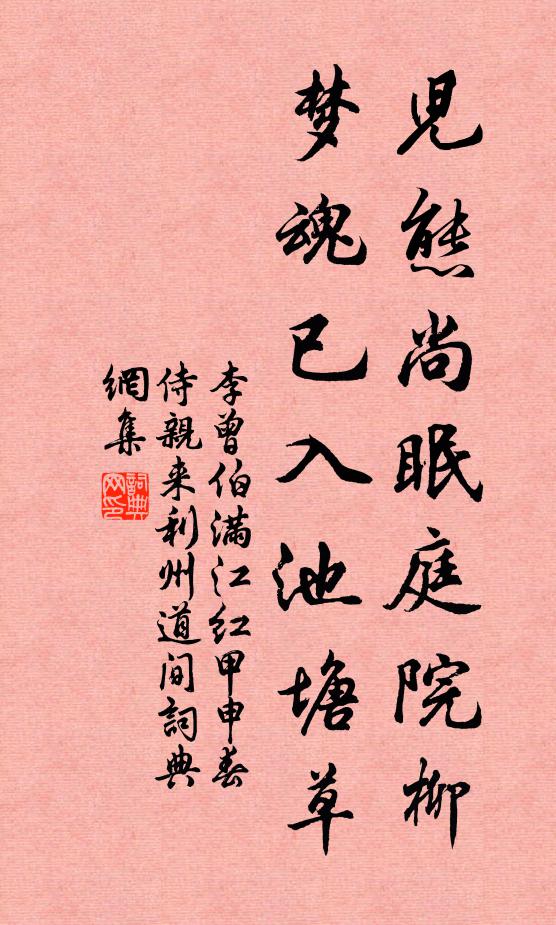 兒態尚眠庭院柳
梦魂已入池塘草
李曾伯滿江红甲申春
侍親来利州道间詞典
網集
詞典
网印